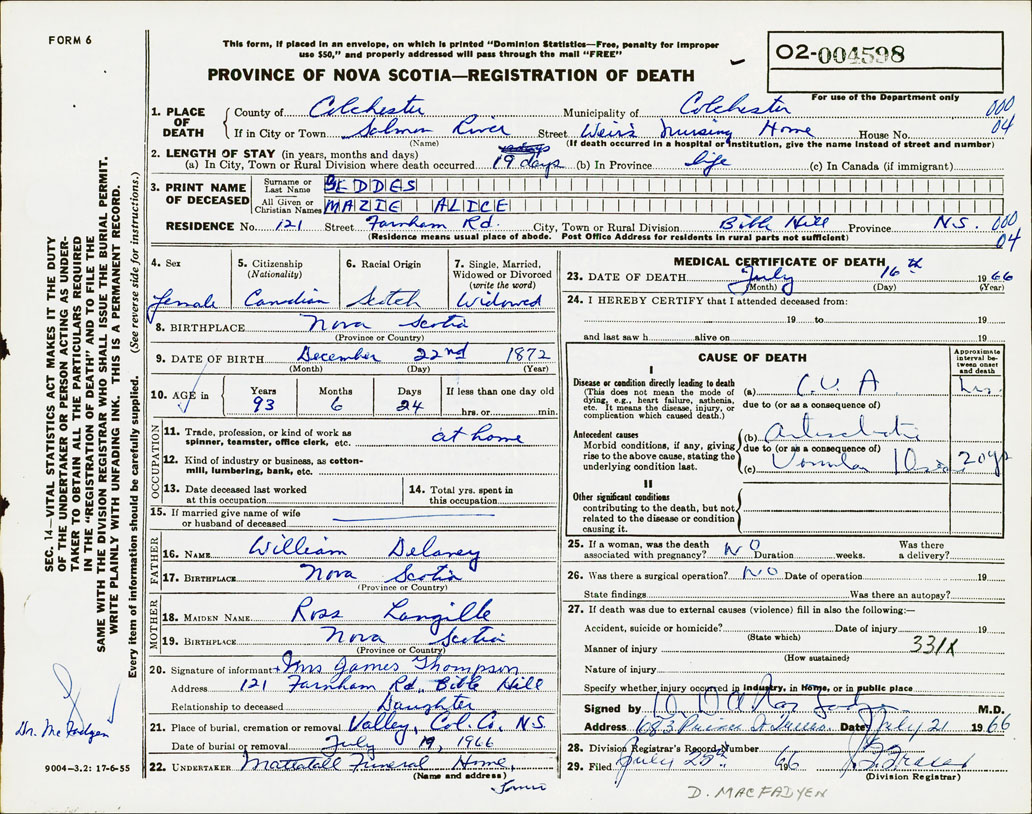 FORM 6
This form, if placed in an envelope, on which is printed "Dominion Statistics—Free, penalty for improper
use $50," and properly addressed will pass through the mail "FREE"
PROVINCE OF NOVA SCOTIA—REGISTRATION OF DEATH
O2-004598
For use of the Department only
1. PLACE OF DEATH
County of Colchester Municipality of Colchester 000
If in City or Town Salmon River Street Weir's Nursing Home House No. 04
(Name) (If death occurred in a hospital or institution, give the name instead of street and number)
2. LENGTH OF STAY (in years, months and days)
(a) In City, Town or Rural Division where death occurred 19 days (b) In Province life (c) In Canada (if immigrant)
3. PRINT NAME OF DECEASED
Surname or Last Name GEDDES
All Given or Christian Names MAZIE ALICE
RESIDENCE No. 121 Street Farnham Rd. City, Town or Rural Division Bible Hill Province N.S. 000
(Residence means usual place of abode. Post Office Address for residents in rural parts not sufficient) 04
4. Sex female
5. Citizenship (Nationality) Canadian
6. Racial Origin Scotch
7. Single, Married, Widowed or Divorced (write the word) Widowed
8. BIRTHPLACE Nova Scotia
(Province or Country)
9. DATE OF BIRTH December 22nd 1872
(Month) (Day) (Year)
10. AGE in Years 93 Months 6 Days 24 If less than one day old hrs. or min.
OCCUPATION
11. Trade, profession, or kind of work as spinner, teamster, office clerk, etc. at home
12. Kind of industry or business, as cotton-mill, lumbering, bank, etc.
13. Date deceased last worked at this occupation
14. Total yrs. spent in this occupation
15. If married give name of wife or husband of deceased
FATHER
16. NAME William Delaney
17. BIRTHPLACE Nova Scotia
(Province or Country)
MOTHER
18. MAIDEN NAME Ross Langille
19. BIRTHPLACE Nova Scotia
(Province or Country)
20. Signature of informant Mrs James Thompson
Address 121 Farnham Rd. Bible Hill
Relationship to deceased Daughter
21. Place of burial, cremation or removal Valley, Col. Co. N.S.
Date of burial or removal July 19, 1966
22. UNDERTAKER Mattatall Funeral Home,
(Name and address)
MEDICAL CERTIFICATE OF DEATH
23. DATE OF DEATH July 16th 1966
(Month) (Day) (Year)
24. I HEREBY CERTIFY that I attended deceased from:
19 to 19
and last saw h alive on 19
CAUSE OF DEATH
Approximate interval between onset and death
I
Disease or condition directly leading to death
(This does not mean the mode of dying, e.g., heart failure, asthenia, etc. It means the disease, injury, or complication which caused death.)
(a) C.V.A hrs.
due to (or as a consequence of)
Antecedent causes
Morbid conditions, if any, giving rise to the above cause, stating the underlying condition last.
(b)
due to (or as a consequence of)
(c) 20 yrs
II
Other significant conditions
contributing to the death, but not related to the disease or condition causing it.
25. If a woman, was the death associated with pregnancy? NO Duration weeks. Was there a delivery?
26. Was there a surgical operation? NO Date of operation 19
State findings Was there an autopsy?
27. If death was due to external causes (violence) fill in also the following:—
Accident, suicide or homicide? Date of injury 19
(State which)
Manner of injury 331X
(How sustained)
Nature of injury
Specify whether injury occurred in industry, in Home, or in public place
Signed by M.D.
Address 683 Prince St Truro. Date July 21 1966
28. Division Registrar's Record Number
29. Filed July 25th 1966
(Division Registrar)
D. MACFADYEN
SEC. 14—VITAL STATISTICS ACT MAKES IT THE DUTY
OF THE UNDERTAKER OR PERSON ACTING AS UNDER-
TAKER TO OBTAIN ALL THE PARTICULARS REQUIRED
IN THE "REGISTRATION OF DEATH" AND TO FILE THE
SAME WITH THE DIVISION REGISTRAR WHO SHALL ISSUE THE BURIAL PERMIT.
WRITE PLAINLY WITH UNFADING INK. THIS IS A PERMANENT RECORD.
Every item of information should be carefully supplied. (See reverse side for instructions.)
Dr. McFadyen
9004—3.2: 17-6-55